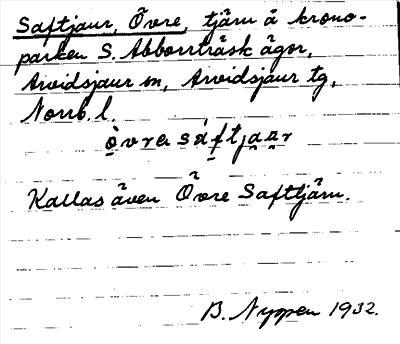 Saftjaur, Övre, tjärn å krono-
parken S. Abborrträsk ägor,
Arvidsjaur sn, Arvidsjaur tg,
Norrb. l.
ò̱vrə sáf̱tja̱u̱r
Kallas även Övre Saftjärn.
B. Nyppen 1932.